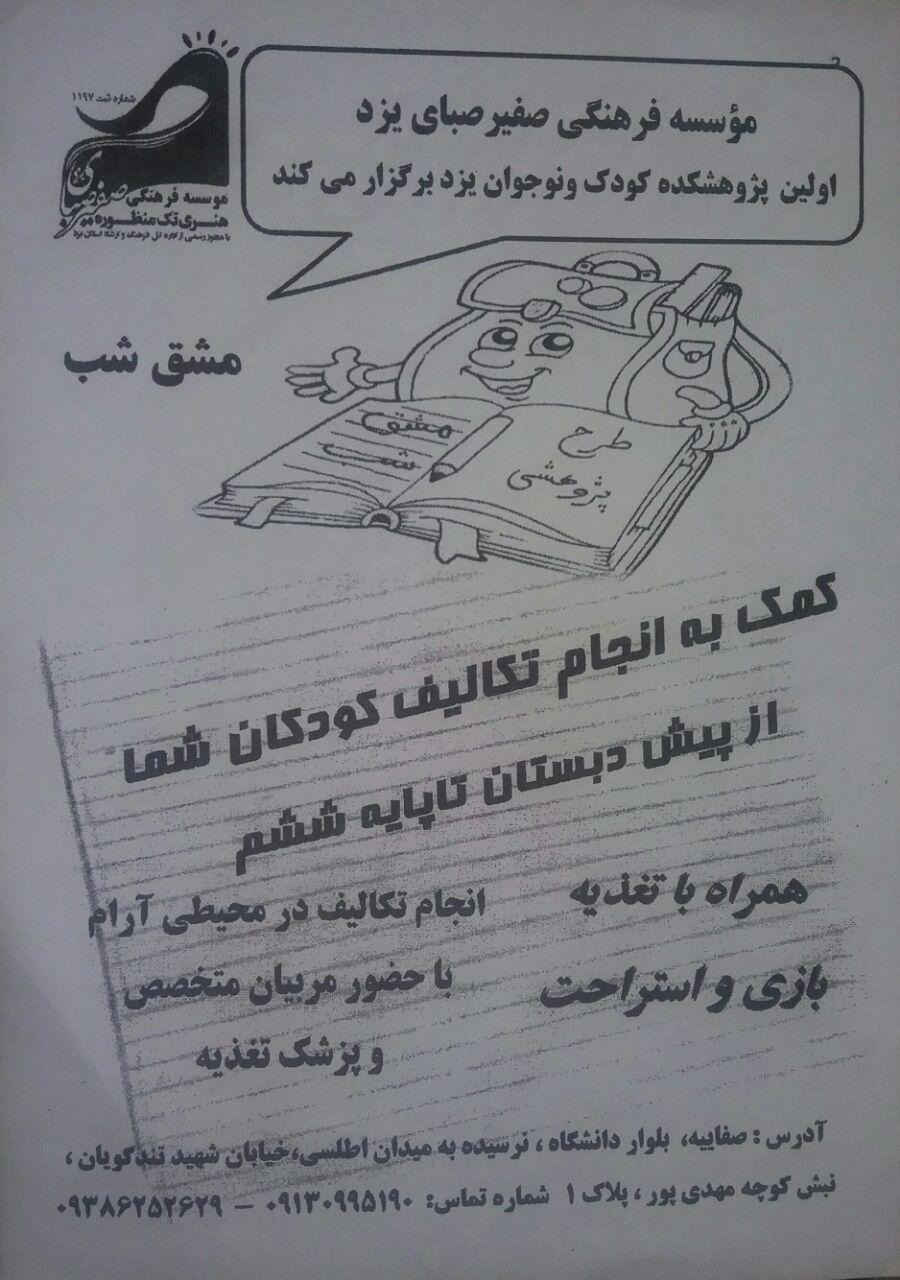 شماره ثبت ۱۱۹۷
صفیر صبای
موسسه فرهنگی
هنری تک منظوره
با مجوز رسمی از اداره کل فرهنگ و ارشاد استان یزد
مؤسسه فرهنگی صفیر صبای یزد
اولین پژوهشکده کودک ونوجوان یزد برگزار می کند
مشق شب
طرح
پژوهشی
مشق
شب
کمک به انجام تکالیف کودکان شما
از پیش دبستان تاپایه ششم
همراه با تغذیه
بازی و استراحت
انجام تکالیف در محیطی آرام
با حضور مربیان متخصص
و پزشک تغذیه
آدرس : صفاییه، بلوار دانشگاه ، نرسیده به میدان اطلسی،خیابان شهید تندگویان ،
نبش کوچه مهدی پور ، پلاک ۱ شماره تماس: ۰۹۱۳۰۹۹۵۱۹۰ – ۰۹۳۸۶۲۵۲۶۲۹